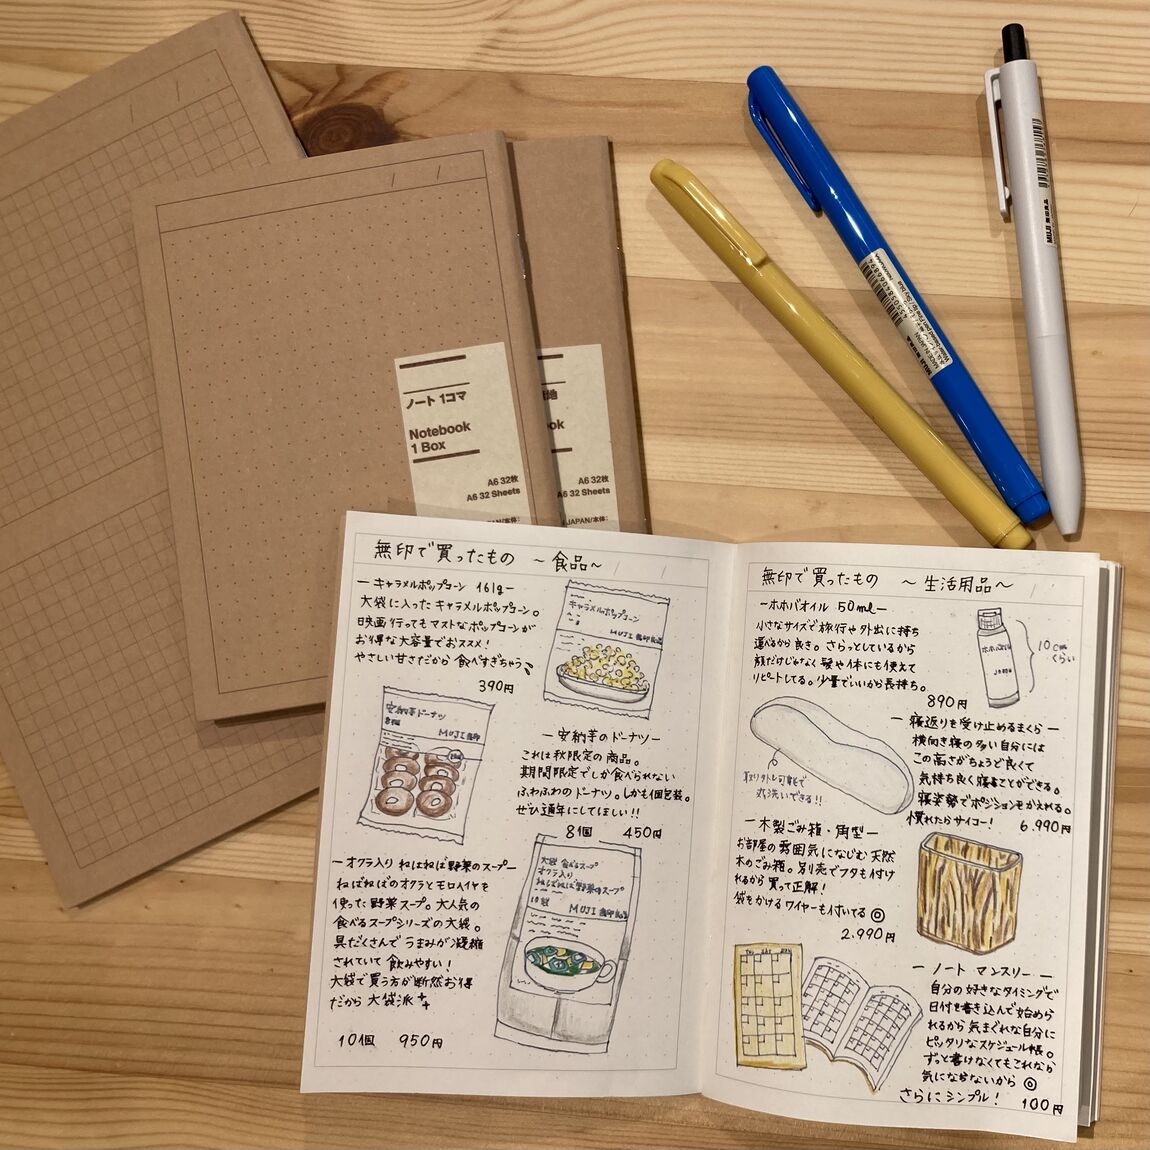 ノート 1コマ
Notebook
1 Box
A6 32枚
A6 32 Sheets
JAPAN/本体:
地
ook
A6 32枚
A6 32 Sheets
JAPAN/本体:
MUJI 無印良品
MADE IN JAPAN
MUJI 無印良品
4550584086894
無印で買ったもの 〜食品〜
ーキャラメルポップコーン 161gー
大袋に入ったキャラメルポップコーン。
映画行ってもマストなポップコーンが
お得な大容量でおススメ!
やさしい甘さだから食べすぎちゃう
390円
キャラメルポップコーン
MUJI 無印良品
安納芋ドーナツ
8個
MUJI 無印
ー安納芋のドーナツー
これは秋限定の商品。
期間限定でしか食べられない
ふわふわのドーナツ。しかも個包装。
ぜひ通年にしてほしい!!
8個 450円
ーオクラ入り ねばねば野菜のスープー
ねばねばのオクラとモロヘイヤを
使った野菜スープ。大人気の
食べるスープシリーズの大袋。
具だくさんでうまみが凝縮
されていて飲みやすい!
大袋で買う方が断然お得
だから大袋派
10個 950円
大袋 食べるスープ
オクラ入り
ねばねば野菜のスープ
10袋
MUJI 無印良品
無印で買ったもの 〜生活用品〜
ーホホバオイル 50mlー
小さなサイズで旅行や外出に持ち
運べるから良き。さらっとしているから
顔だけじゃなく髪や体にも使えて
リピートしてる。少量でいいから長持ち。
890円
ホホバオイル
10cm
くらい
ー寝返りを受け止めるまくらー
横向き寝の多い自分には
この高さがちょうど良くて
気持ち良く寝ることができる。
寝姿勢でポジションをかえれる。
慣れたらサイコー! 6.990円
取り外し可能で
丸洗いできる!!
ー木製ごみ箱・角型ー
お部屋の雰囲気になじむ天然
木のごみ箱。別売でフタも付け
れるから買って正解!
袋をかけるワイヤーも付いてる◎
2.990円
ーノート マンスリーー
自分の好きなタイミングで
日付を書き込んで始めら
れるから気まぐれな自分に
ピッタリなスケジュール帳。
ずっと書けなくてもこれなら
気にならないから◎
さらにシンプル! 100円